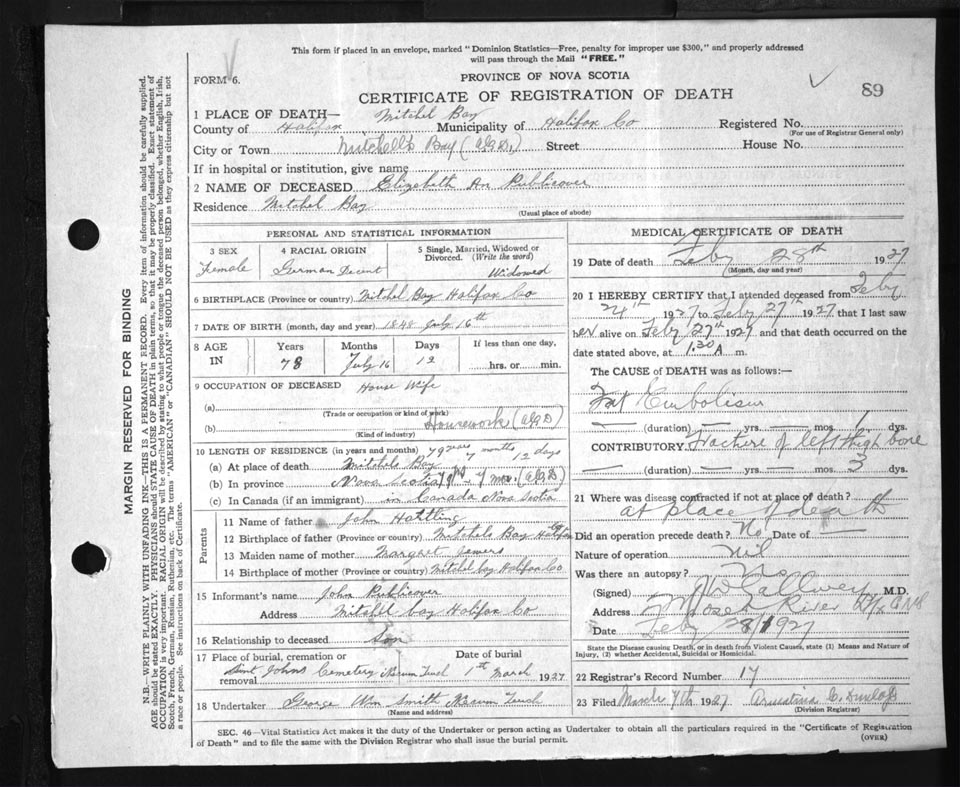 This form if placed in an envelope, marked "Dominion Statistics—Free, penalty for improper use $300," and properly addressed
will pass through the Mail "FREE."
FORM 6.
PROVINCE OF NOVA SCOTIA
89
CERTIFICATE OF REGISTRATION OF DEATH
1 PLACE OF DEATH— Mitchel Bay
County of Halifax Municipality of Halifax Co Registered No.
(For use of Registrar General only)
City or Town Mitchell's Bay Street House No.
If in hospital or institution, give name
2 NAME OF DECEASED Elizabeth An Publicover
Residence Mitchel Bay
(Usual place of abode)
PERSONAL AND STATISTICAL INFORMATION
3 SEX Female
4 RACIAL ORIGIN German Decent
5 Single, Married, Widowed or Divorced. (Write the word) Widowed
6 BIRTHPLACE (Province or country) Mitchel Bay Halifax Co
7 DATE OF BIRTH (month, day and year) 1848 July 16th
8 AGE IN Years Months Days If less than one day,
78 July 16 12 hrs. or min.
9 OCCUPATION OF DECEASED House Wife
(a)
(Trade or occupation or kind of work)
(b) Housework
(Kind of industry)
10 LENGTH OF RESIDENCE (in years and months) 79 years 7 months 12 days
(a) At place of death Mitchels Bay
(b) In province Nova Scotia
(c) In Canada (if an immigrant) in Canada Nova Scotia
Parents
11 Name of father John Hattling
12 Birthplace of father (Province or country) Mitchels Bay Halifax
13 Maiden name of mother Margret Jewers
14 Birthplace of mother (Province or country) Mitchel bay Halifax Co
15 Informant's name John Publicover
Address Mitchel bay Halifax Co
16 Relationship to deceased Son
17 Place of burial, cremation or removal Date of burial
Saint Johns Cemetery Necum Teuch 1st March 1927
18 Undertaker George Wm Smith Necum Teuch
(Name and address)
MEDICAL CERTIFICATE OF DEATH
19 Date of death Feby 28th 1927
(Month, day and year)
20 I HEREBY CERTIFY that I attended deceased from Feby
24th 1927 to Feby 27th 1927 that I last saw
her alive on Feby 27th 1927 and that death occurred on
date stated above, at 1.30 A m.
The CAUSE of DEATH was as follows:—
Fat Embolism
(duration) yrs. mos. dys.
CONTRIBUTORY Fracture of left thigh bone
(duration) yrs. mos. 3 dys.
21 Where was disease contracted if not at place of death?
at place of death
Did an operation precede death? No Date of
Nature of operation Nil
Was there an autopsy? No
(Signed) M.D.
Address Moser River
Date Feby 28/1927
State the Disease causing Death, or in death from Violent Causes, state (1) Means and Nature of
Injury, (2) whether Accidental, Suicidal or Homicidal.
22 Registrar's Record Number 17
23 Filed March 7th 1927 C. Dunlap
(Division Registrar)
SEC. 46—Vital Statistics Act makes it the duty of the Undertaker or person acting as Undertaker to obtain all the particulars required in the "Certificate of Registration
of Death" and to file the same with the Division Registrar who shall issue the burial permit.
(OVER)
MARGIN RESERVED FOR BINDING
N.B.—WRITE PLAINLY WITH UNFADING INK—THIS IS A PERMANENT RECORD. Every item of information should be carefully supplied.
AGE should be stated EXACTLY. PHYSICIANS should STATE CAUSE OF DEATH in plain terms, so that it may be properly classified. Exact statement of
OCCUPATION is very important. RACIAL ORIGIN will be described by stating to what people or tongue the deceased person belonged, whether English, Irish,
Scotch, French, German, Russian, Ruthenian, etc. The terms "AMERICAN" or "CANADIAN" SHOULD NOT BE USED as they express citizenship but not
a race or people. See instructions on back of Certificate.